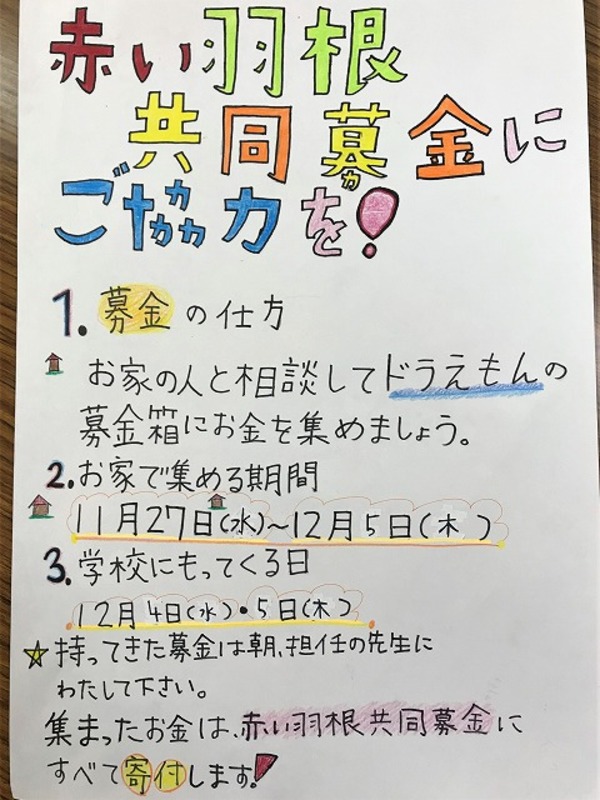 赤い羽根
共同募金に
ご協力を!
1.募金の仕方
お家の人と相談してドラえもんの
募金箱にお金を集めましょう。
2.お家で集める期間
11月27日(水)~12月5日(木)
3.学校にもってくる日
12月4日(水)・5日(木)
☆持ってきた募金は朝、担任の先生に
わたして下さい。
集まったお金は、赤い羽根共同募金に
すべて寄付します!